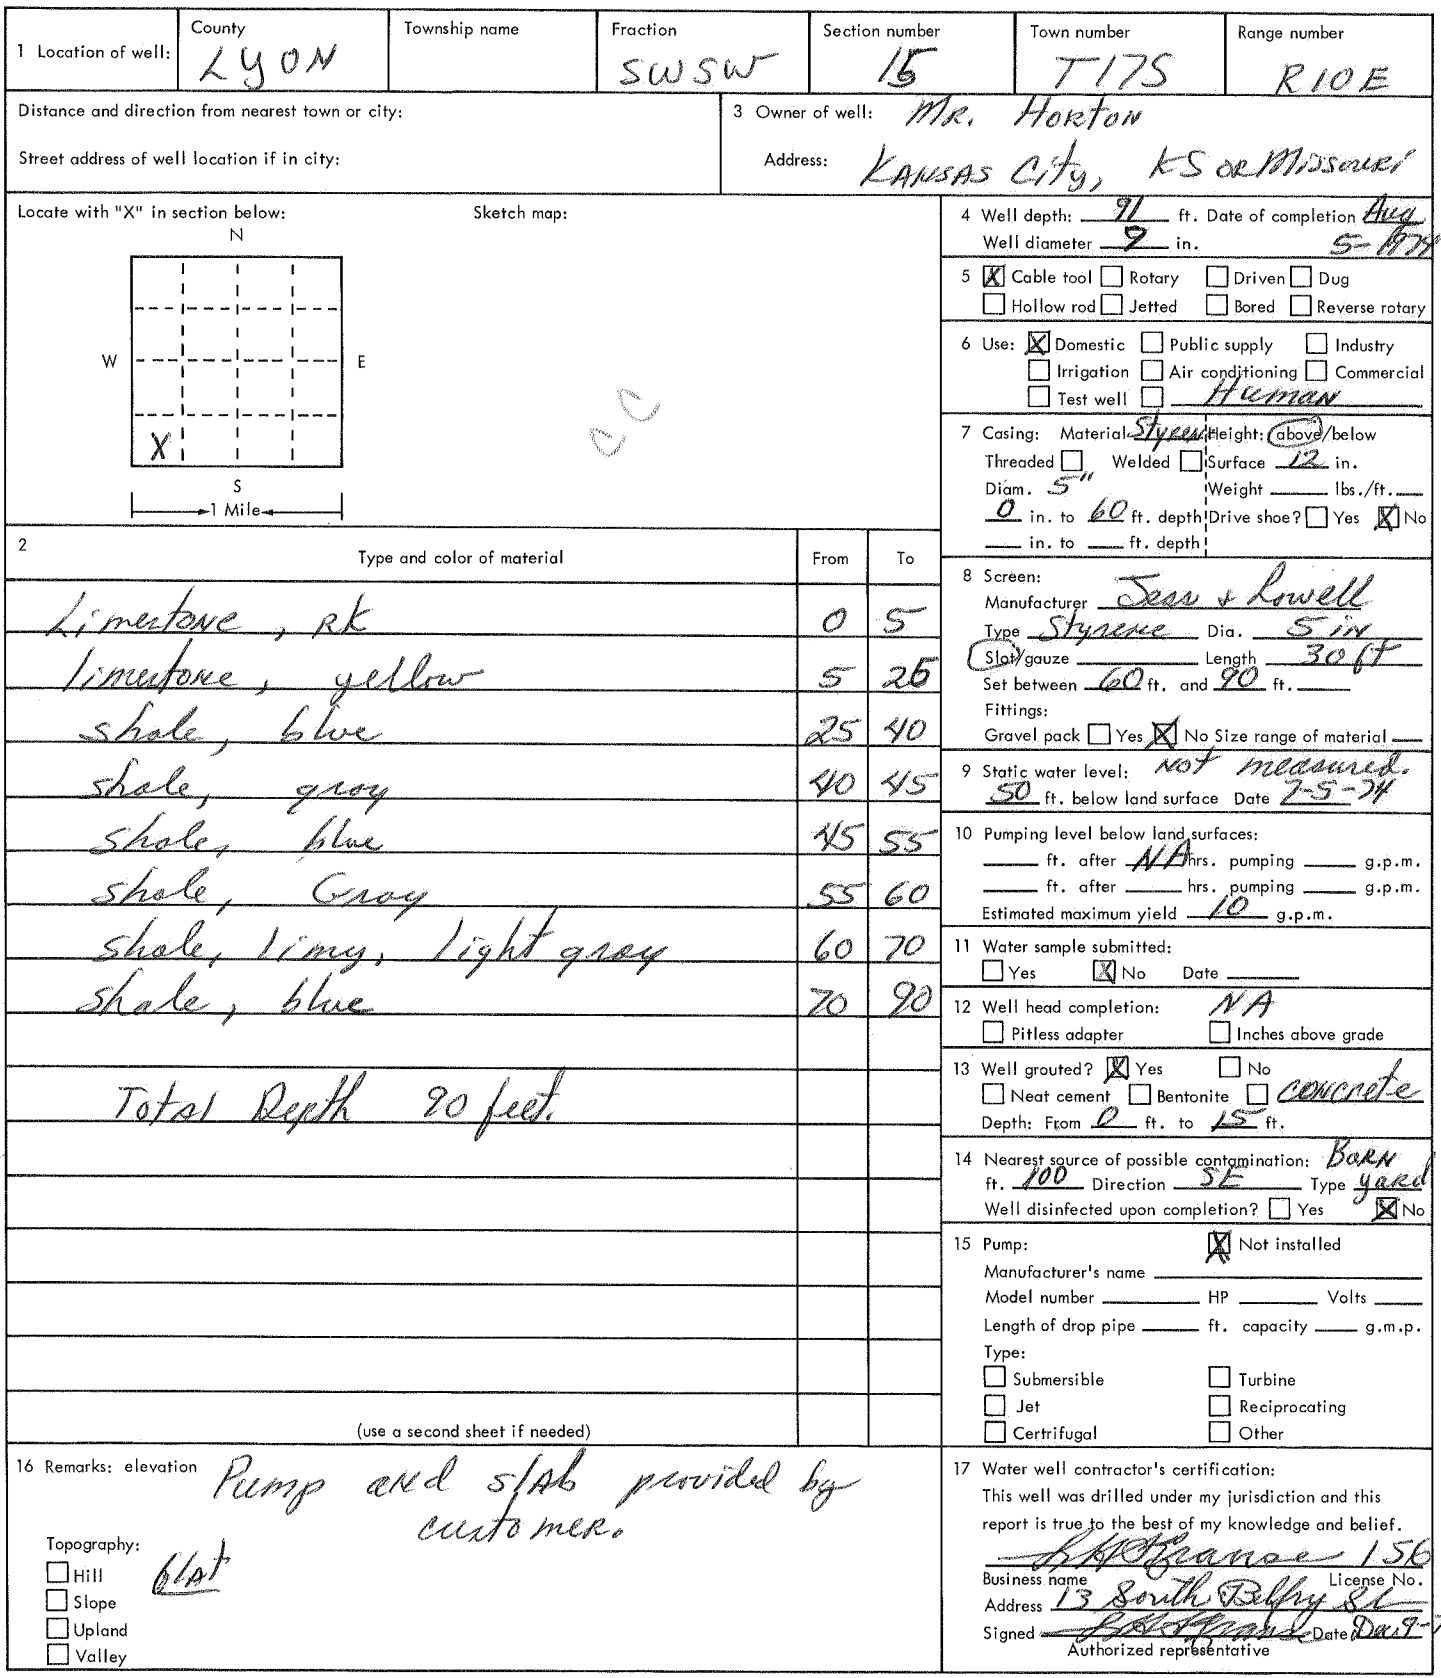 1 Location of well:
County
LYON
Township name
Fraction
SWSW
Section number
15
Town number
T17S
Range number
R10E
Distance and direction from nearest town or city:
Street address of well location if in city:
3 Owner of well: MR. HORTON
Address: KANSAS City, KS OR MISSOURI
Locate with "X" in section below:
Sketch map:
N
W
E
X
S
1 Mile
4 Well depth: 91 ft. Date of completion Aug
Well diameter 9 in. 5-1974
5 X Cable tool Rotary Driven Dug
Hollow rod Jetted Bored Reverse rotary
6 Use: X Domestic Public supply Industry
Irrigation Air conditioning Commercial
Test well HUMAN
7 Casing: Material Styrene Height: above/below
Threaded Welded Surface 12 in.
Diam. 5" Weight lbs./ft.
0 in. to 60 ft. depth Drive shoe? Yes X No
in. to ft. depth
8 Screen:
Manufacturer Jess & Lowell
Type Styrene Dia. 5 in
Slot/gauze Length 30 ft
Set between 60 ft. and 90 ft.
Fittings:
Gravel pack Yes X No Size range of material
9 Static water level: Not measured.
50 ft. below land surface Date 7-5-74
10 Pumping level below land surfaces:
ft. after NA hrs. pumping g.p.m.
ft. after hrs. pumping g.p.m.
Estimated maximum yield 10 g.p.m.
11 Water sample submitted:
Yes X No Date
12 Well head completion: NA
Pitless adapter Inches above grade
13 Well grouted? X Yes No
Neat cement Bentonite concrete
Depth: From 0 ft. to 15 ft.
14 Nearest source of possible contamination: BARN
ft. 100 Direction SE Type yard
Well disinfected upon completion? Yes X No
15 Pump: X Not installed
Manufacturer's name
Model number HP Volts
Length of drop pipe ft. capacity g.m.p.
Type:
Submersible Turbine
Jet Reciprocating
Certrifugal Other
2
Type and color of material From To
Limestone, RK 0 5
limestone, yellow 5 25
shale, blue 25 40
shale, gray 40 45
shale, blue 45 55
shale, Gray 55 60
shale, limy, light gray 60 70
shale, blue 70 90
Total Depth 90 feet.
(use a second sheet if needed)
16 Remarks: elevation Pump and slab provided by
customer.
Topography:
Hill flat
Slope
Upland
Valley
17 Water well contractor's certification:
This well was drilled under my jurisdiction and this
report is true to the best of my knowledge and belief.
156
Business name License No.
Address 13 South Belfry St
Signed Date Dec 9-
Authorized representative